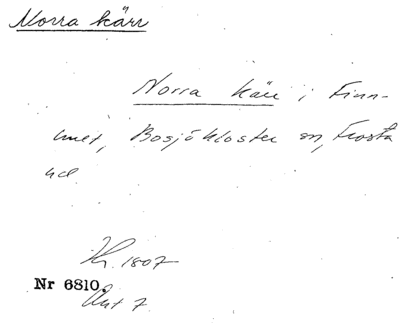 Norra kärr
Norra kärr i Finn-
met, Bosjökloster sn, Frosta
hd.
1807
Nr 6810.
Akt 7